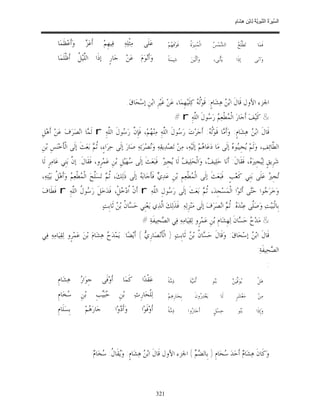 السيرة النبوية لابن هشام
فما تطلع الشمس المنيرة فوقهم على مثله فيهم أعز وأعظما
وآنى إذا يأبى، وألين شيمة وأنوم عن جار إذا الليل أظلما
الجزء الأول قال ابن هشام: قوله كليهما، عن غير ابن إسحاق
كيف أجار المطعم رسول الله
قال ابن هشام: وأما قوله: أجرت رسول الله منهم، فإن رسول الله لما انصرف عن أهل
الطائف، ولم يجيبوه إلى ما دعاهم إليه، من تصديقه ونصرته صار إلى حراء، ثم بعث إلى الأخنس بن
شريق ليجيره، فقال: أنا حليف، والحليف لا يجير. فبعث إلى سهيل بن عمرو، فقال: إن بني عامر لا
تجير على بني كعب. فبعث إلى المطعم بن عدي فأجابه إلى ذلك، ثم تسلح المطعم وأهل بيته،
وخرجوا حتى أتوا المسجد، ثم بعث إلى رسول الله أن ادخل، فدخل رسول الله فطاف
بالبيت وصلى عنده ثم انصرف إلى منزله. فذلك الذي يعني حسان بن ثابت
مدح حسان لهشام بن عمرو لقيامه في الصحيفة
قال ابن إسحاق: وقال حسان بن ثابت (الأنصاري) أيضا: يمدح هشام بن عمرو لقيامه في
الصحيفة
هل يوفين بنو أمية ذمة عقدا كما أوفى جوار هشام
من معشر لا يغدرون بجارهم للحارث بن حبيب بن سخام
وإذا بنو حسل أجاروا ذمة أوفوا وأدوا جارهم بسلام
وكان هشام أحد سخام (بالضم) الجزء الأول قال ابن هشام: ويقال: سخام
321